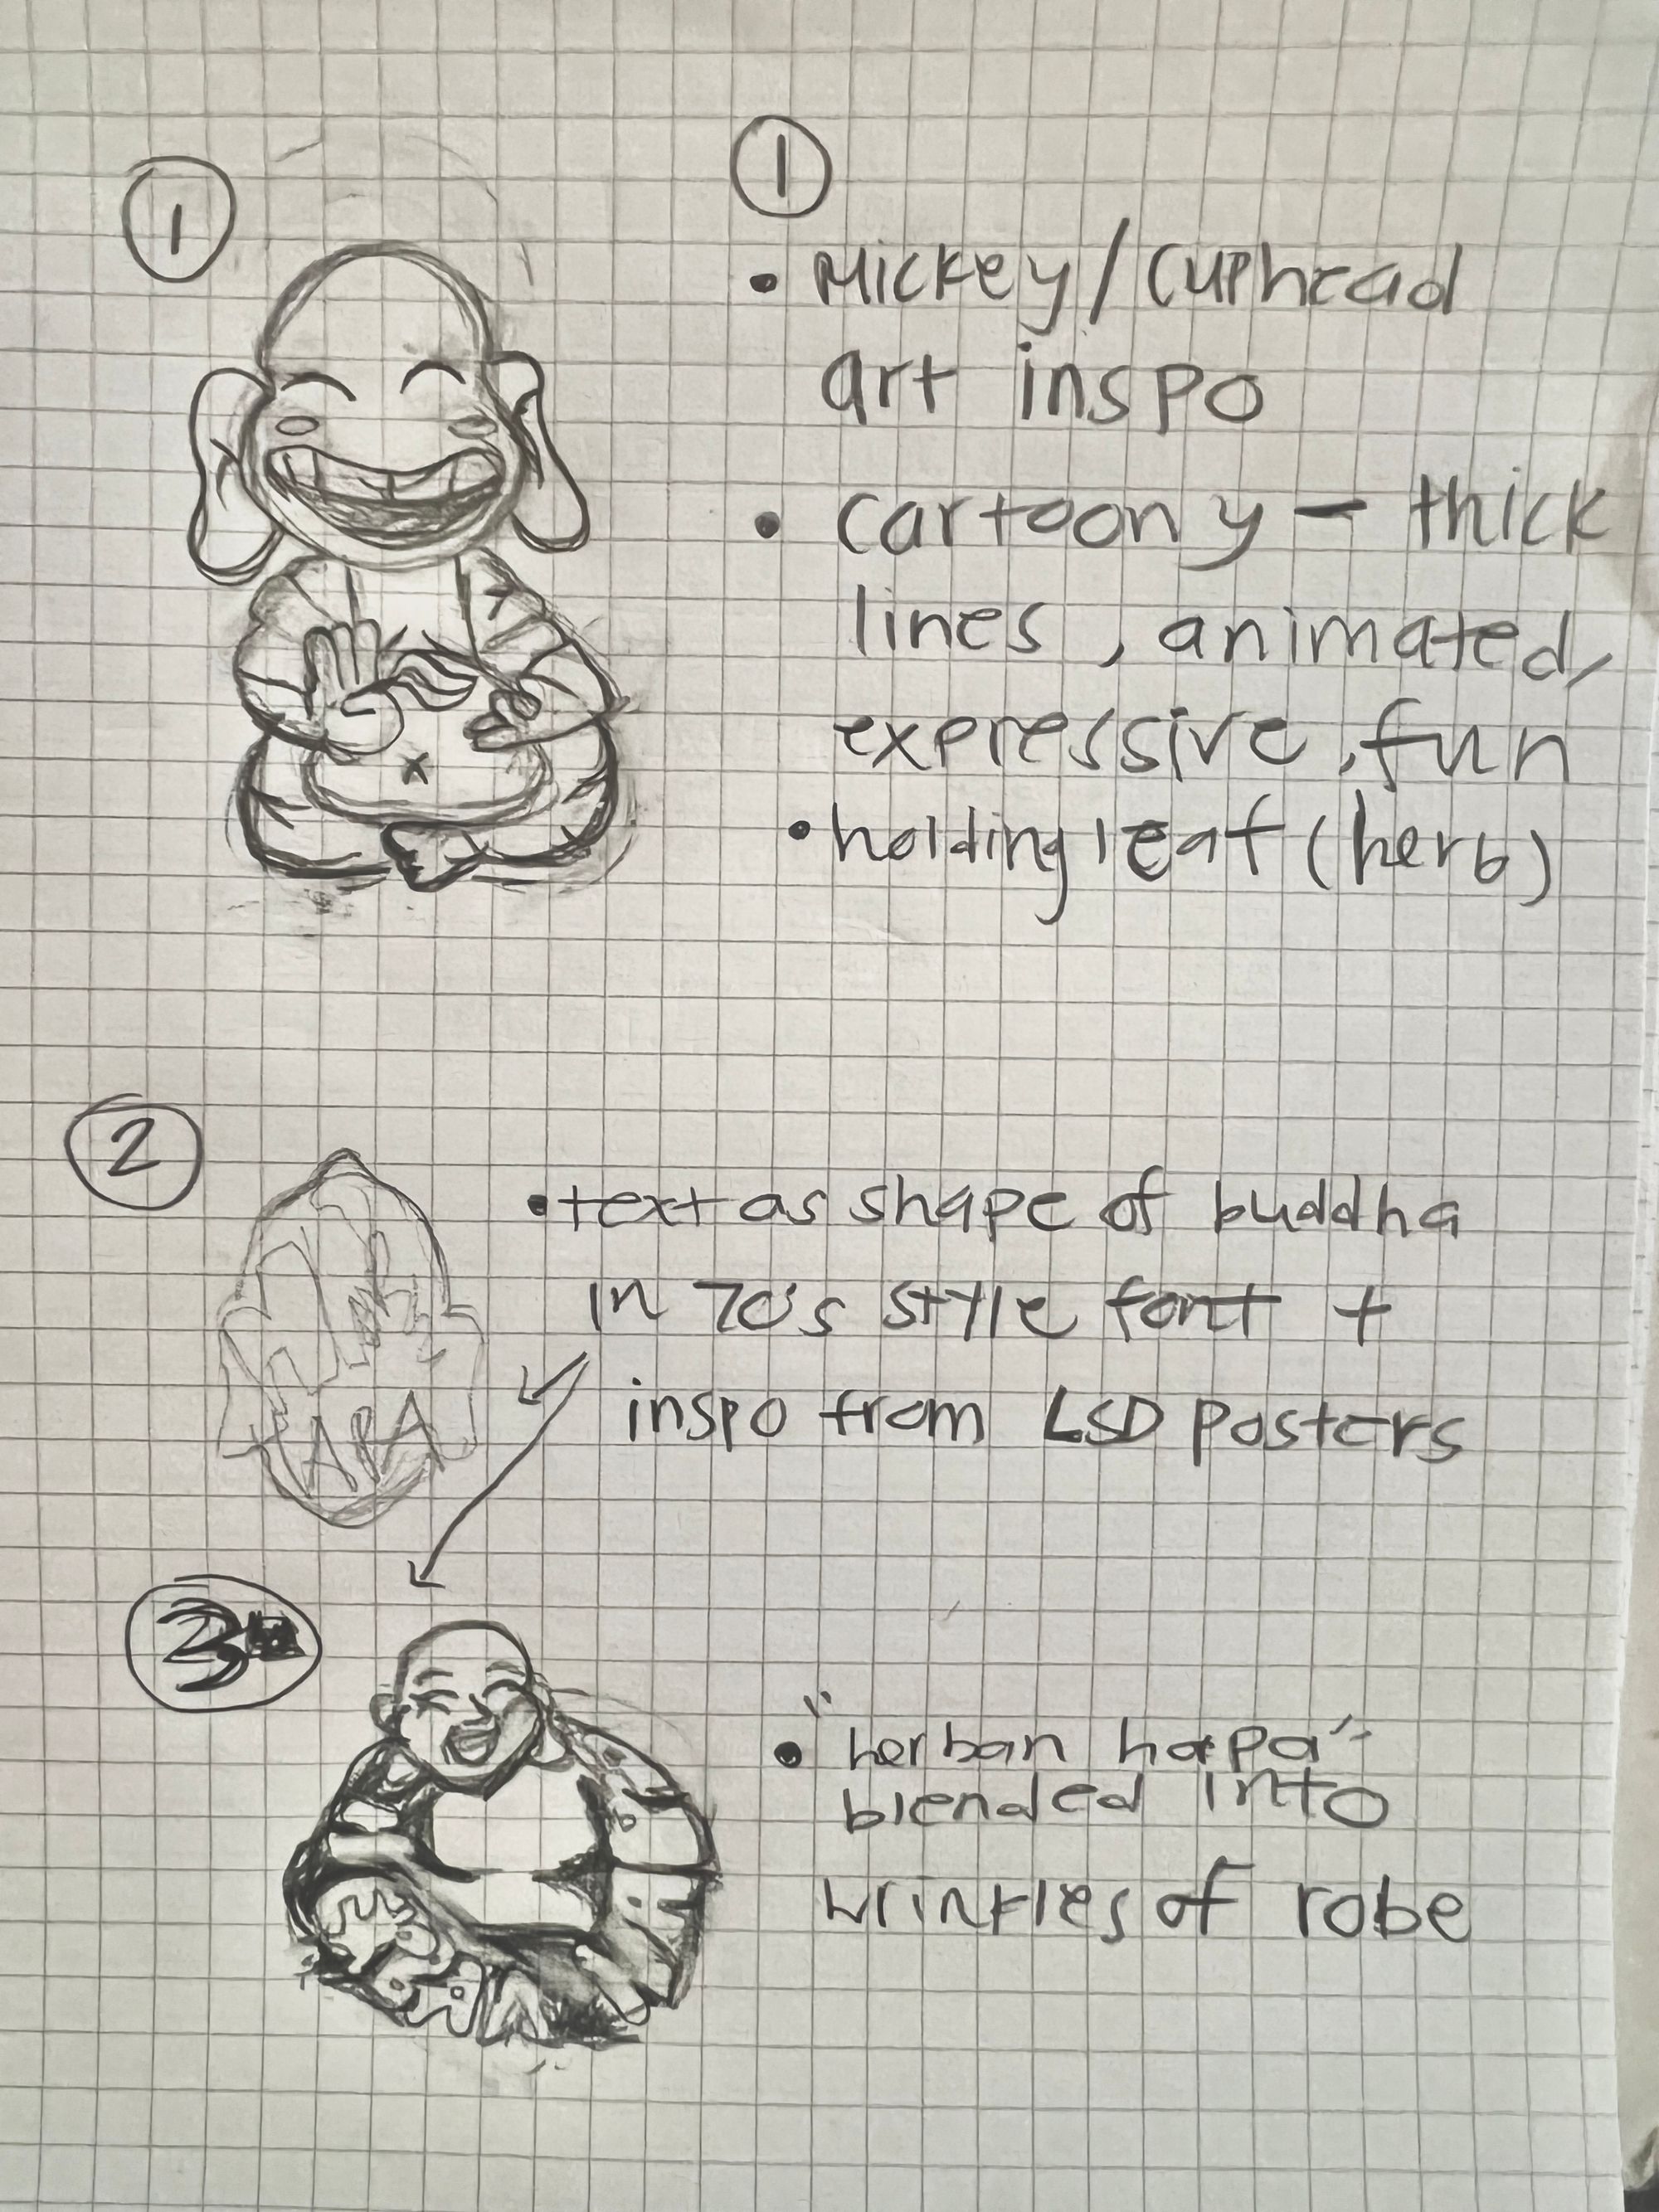 1
1
• Mickey/Cuphead
art inspo
• cartoony - thick
lines, animated,
expressive, fun
• holding leaf (herb)
2
• text as shape of buddha
in 70's style font +
inspo from LSD posters
HAPA
3
• "herban hapa"
blended into
wrinkles of robe